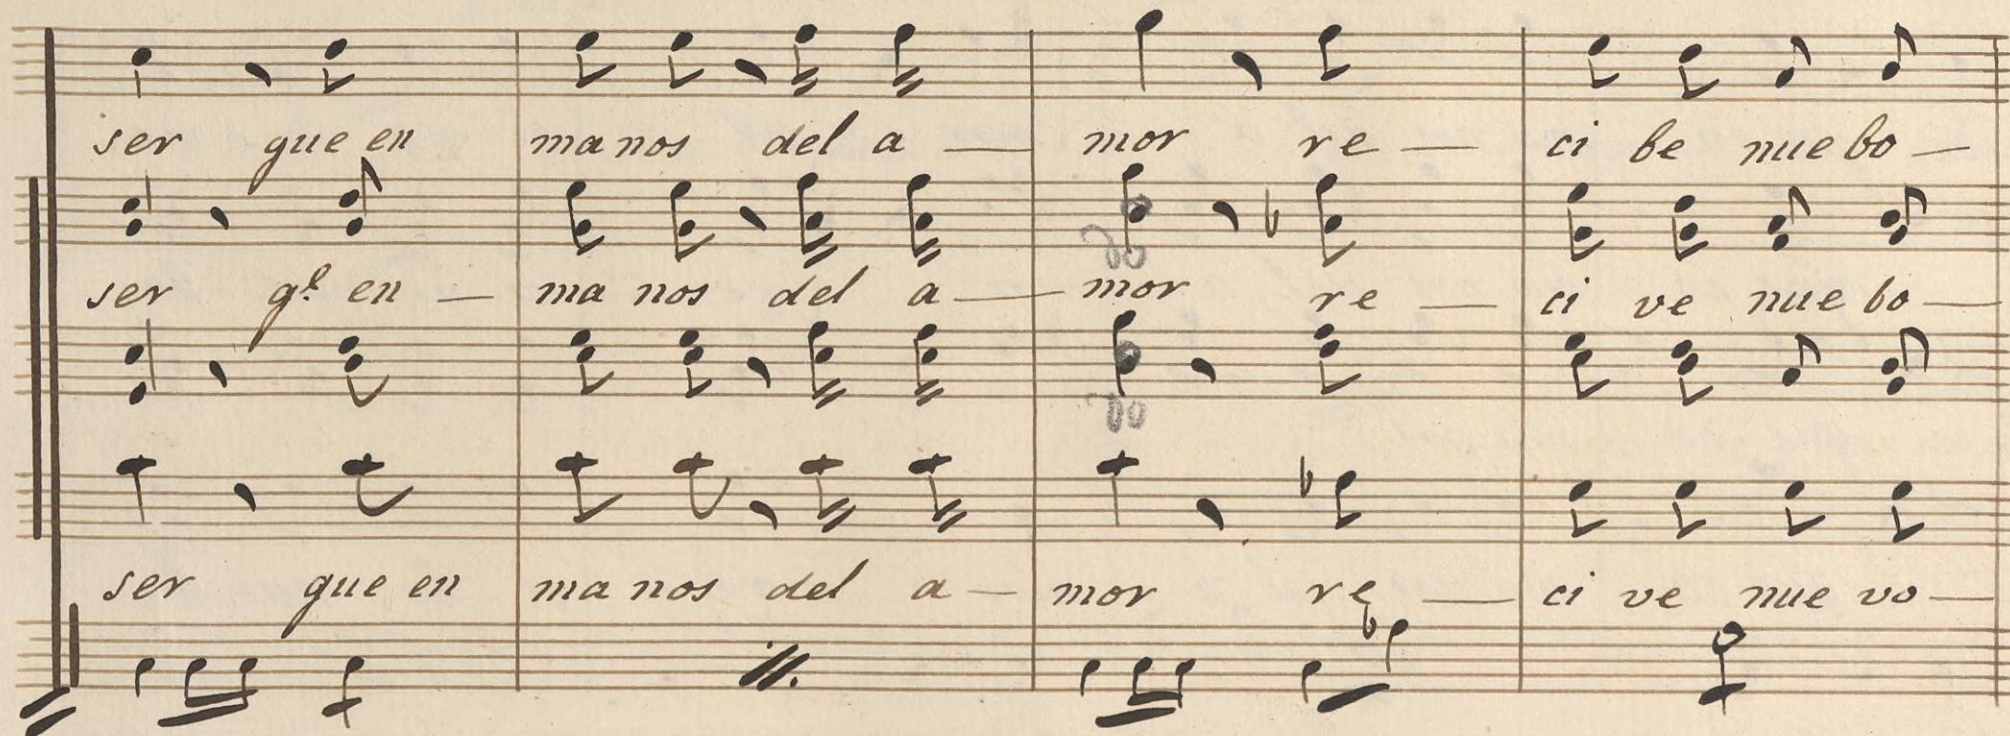 ser que en ma nos del a — mor re — ci be nue bo —
ser q.e en — ma nos del a — mor re — ci ve nue bo —
ser que en ma nos del a — mor re — ci ve nue vo —